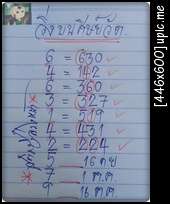 วิ่งบนศิษย์วัด
6 = 630 ✓
4 = 142 ✓
6 = 360 ✓
3 = 327 ✓
1 = 519 ✓
4 = 431 ✓
2 = 224 ✓
5 16 กย
7 1 ต.ค.
9 16 ต.ค.
[446x600] upic.me